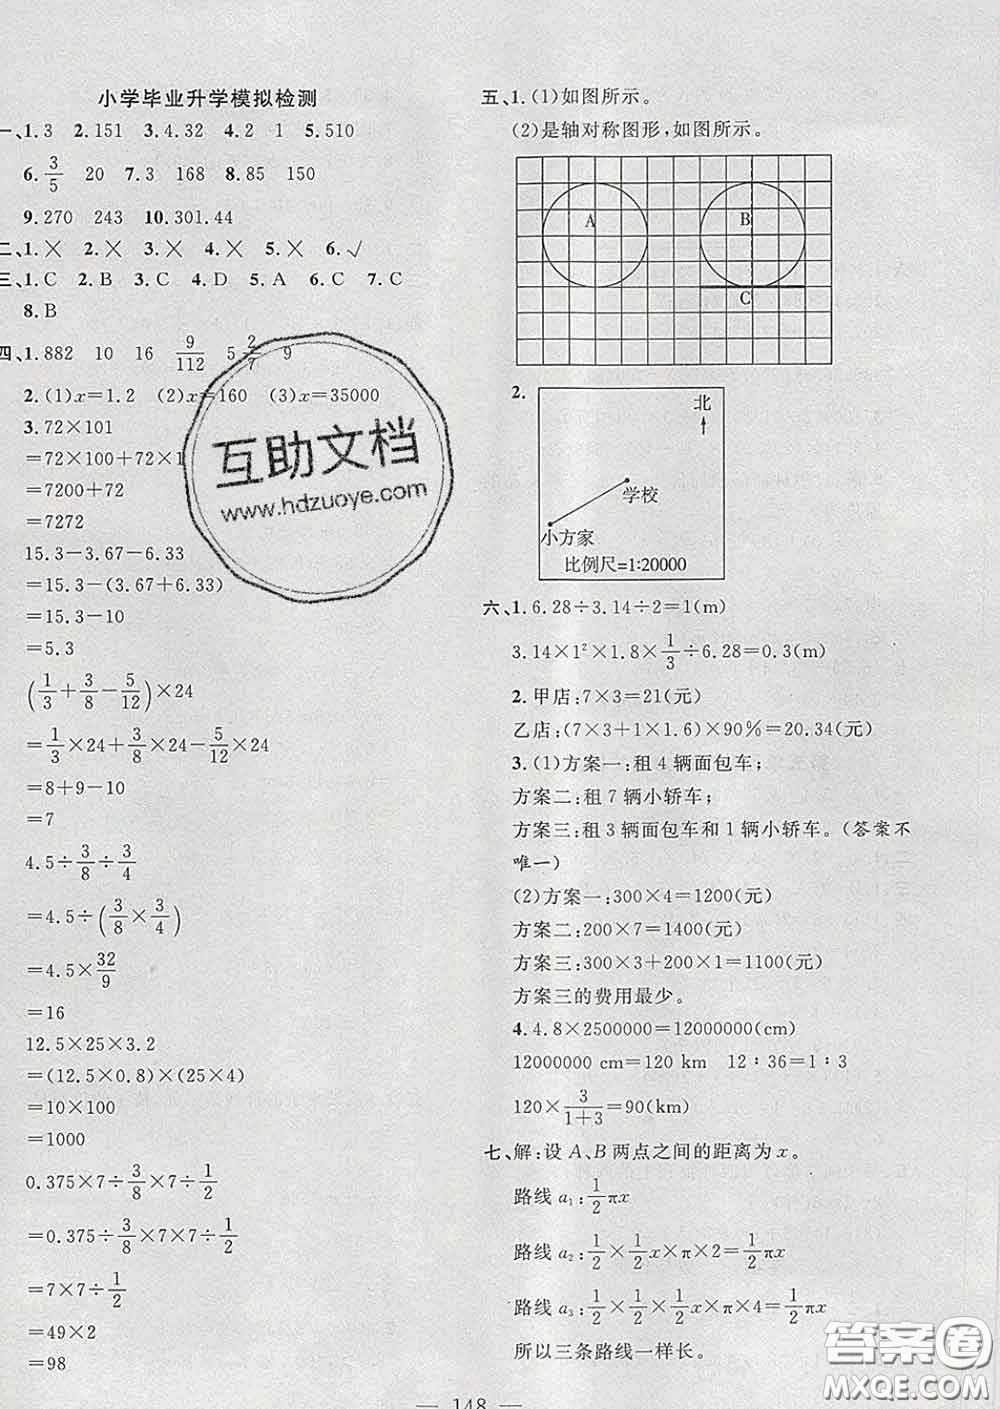 小学毕业升学模拟检测
一、1.3 2.151 3.4.32 4.2 1 5.510
6.3/5 20 7.3 168 8.85 150
9.270 243 10.301.44
二、1.× 2.× 3.× 4.× 5.× 6.√
三、1.C 2.B 3.C 4.D 5.A 6.C 7.C
8.B
四、1.882 10 16 9/112 5 2/7 9
2.(1)x=1.2 (2)x=160 (3)x=35000
3.72×101
=72×100+72×1
=7200+72
=7272
15.3-3.67-6.33
=15.3-(3.67+6.33)
=15.3-10
=5.3
(1/3+3/8-5/12)×24
=1/3×24+3/8×24-5/12×24
=8+9-10
=7
4.5÷3/8÷3/4
=4.5÷(3/8×3/4)
=4.5×32/9
=16
12.5×25×3.2
=(12.5×0.8)×(25×4)
=10×100
=1000
0.375×7÷3/8×7÷1/2
=0.375÷3/8×7×7÷1/2
=7×7÷1/2
=49×2
=98
五、1.(1)如图所示。
(2)是轴对称图形,如图所示。
A B
C
2.
北
学校
小方家
比例尺=1:20000
六、1.6.28÷3.14÷2=1(m)
3.14×1²×1.8×1/3÷6.28=0.3(m)
2.甲店:7×3=21(元)
乙店:(7×3+1×1.6)×90%=20.34(元)
3.(1)方案一:租4辆面包车;
方案二:租7辆小轿车;
方案三:租3辆面包车和1辆小轿车。(答案不
唯一)
(2)方案一:300×4=1200(元)
方案二:200×7=1400(元)
方案三:300×3+200×1=1100(元)
方案三的费用最少。
4.4.8×2500000=12000000(cm)
12000000 cm=120 km 12:36=1:3
120×3/(1+3)=90(km)
七、解:设A、B两点之间的距离为x。
路线a₁:1/2πx
路线a₂:1/2×1/2x×π×2=1/2πx
路线a₃:1/2×1/2×1/2x×π×4=1/2πx
所以三条路线一样长。
— 148 —
互助文档
www.hdzuoye.com
答案圈
MXQE.COM